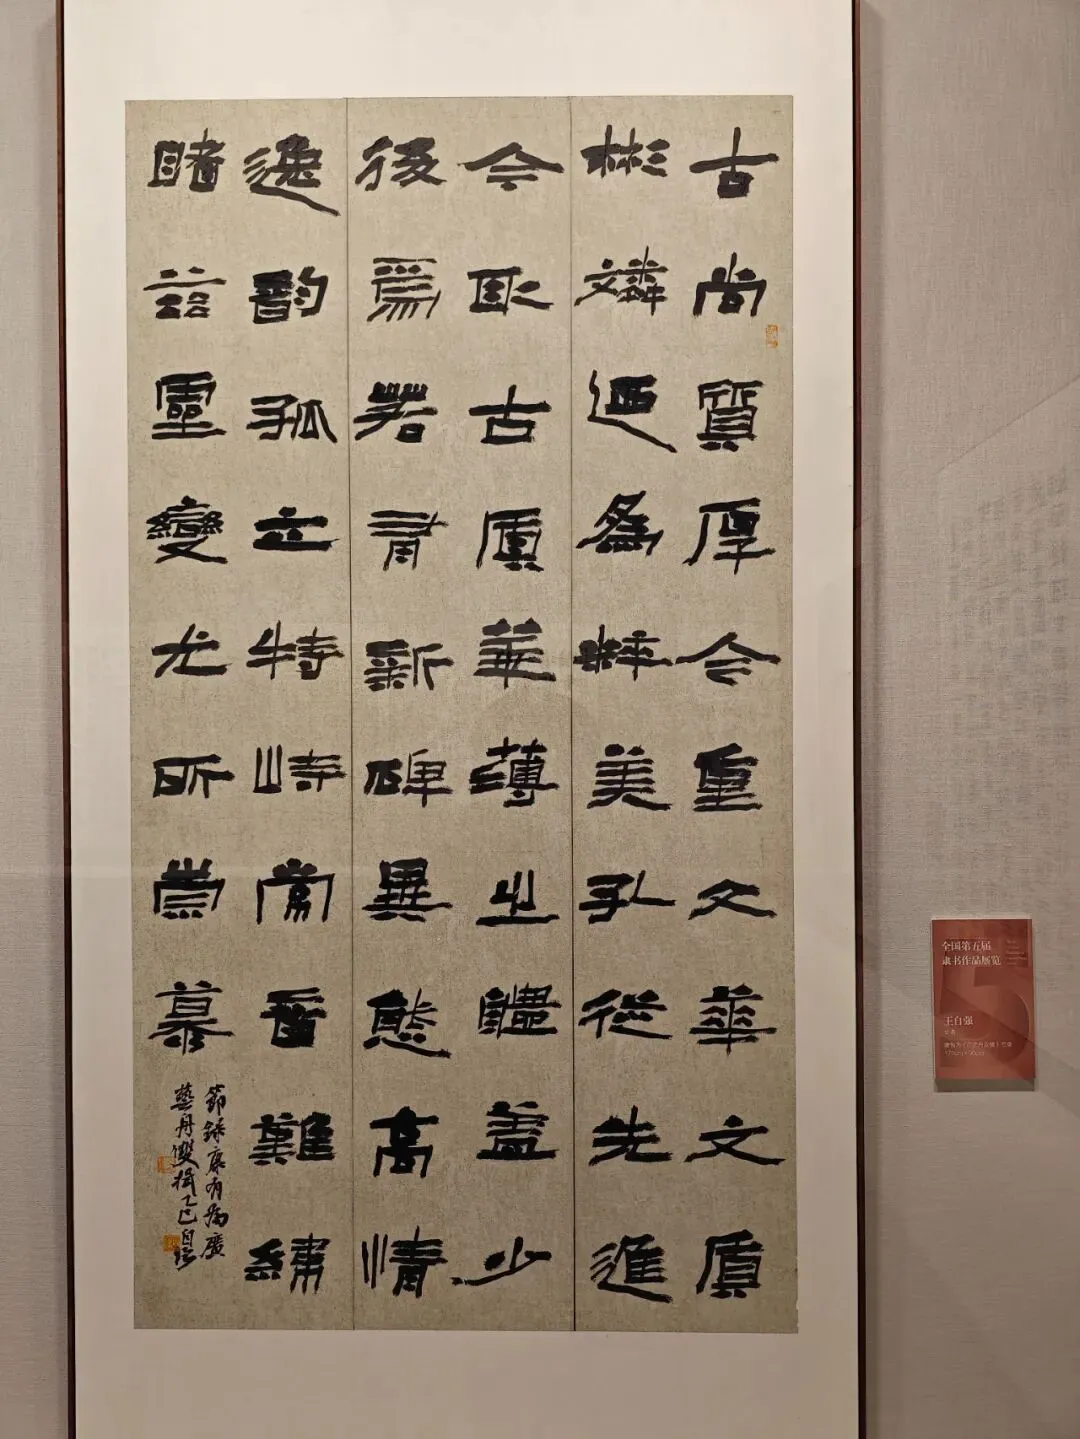 古尚質厚今重文華文質
彬璘迺為粹美孔從先進
今取古質華薄之體蓋少
後焉若有新碑異態高情
逸韵孤立特峙常音難繡
睹茲靈變尤所崇慕
節録康有為廣
藝舟雙楫乙巳自强
全国第五届
隶书作品展览
王自强